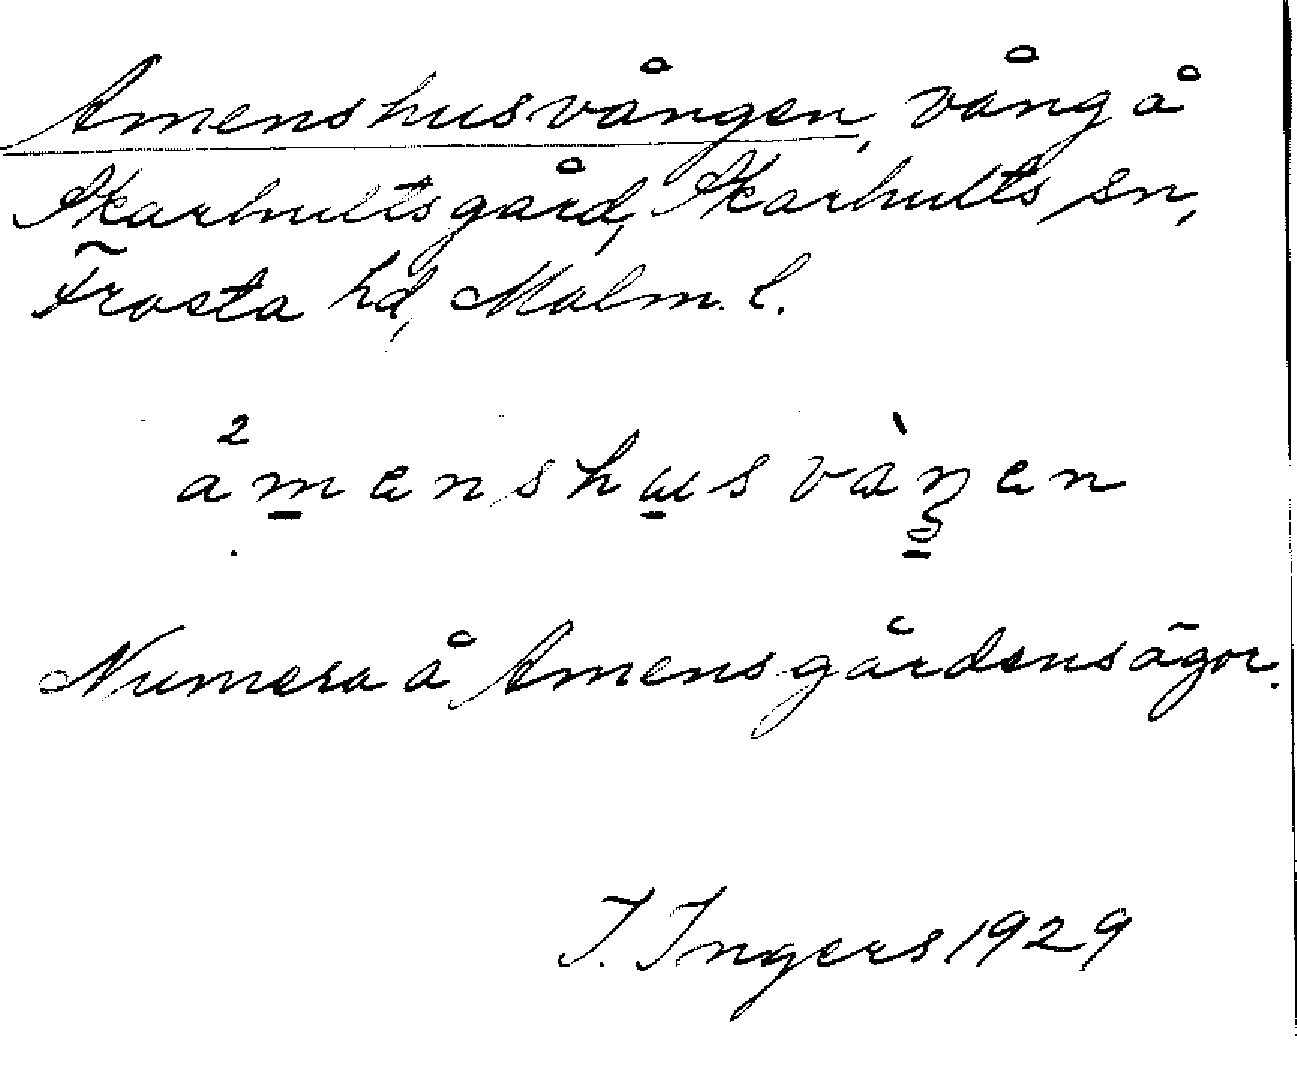 Amenshusvången, vång å
Skarhultsgård, Skarhults sn,
Frosta hd, Malm. l.
Numera å Amensgårdens ägor.
I. Ingers 1929